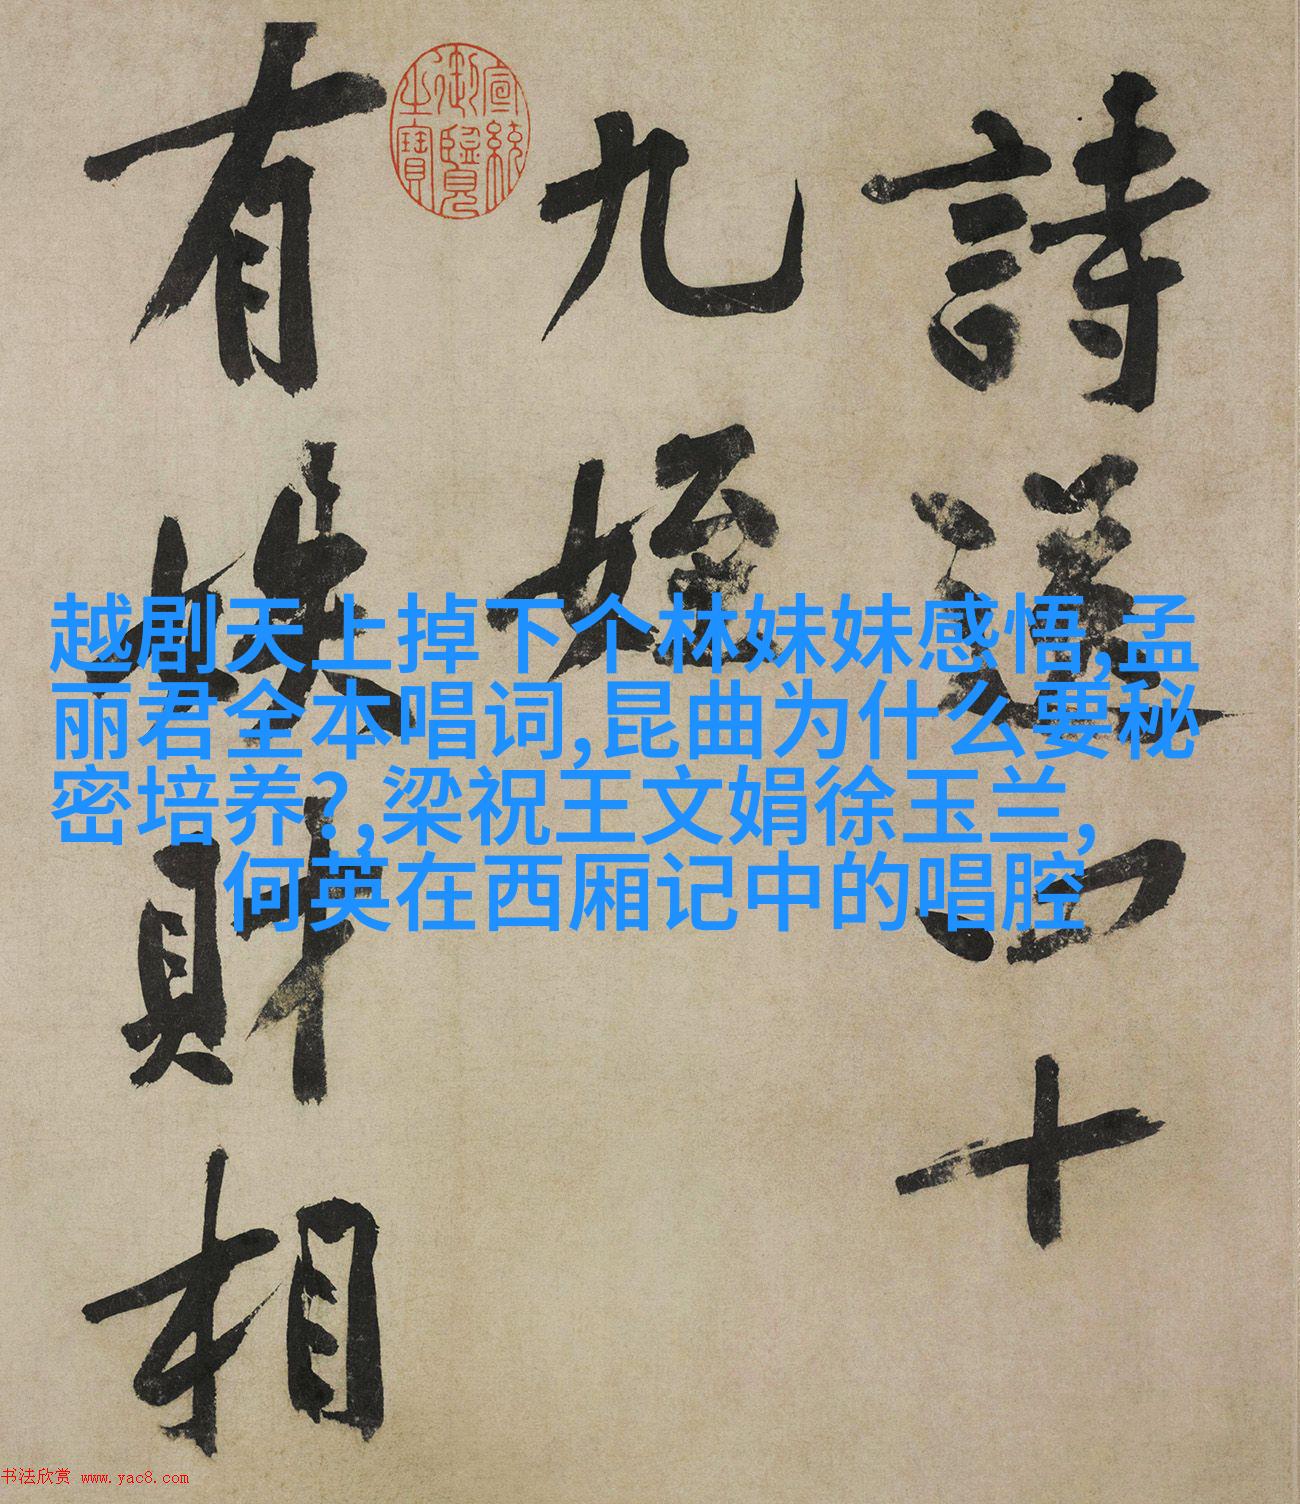 詩送四十
九姪
有
財相
宣統御覽之寶
越剧天上掉下个林妹妹感悟,孟
丽君全本唱词,昆曲为什么要秘
密培养?,梁祝王文娟徐玉兰,
何英在西厢记中的唱腔
书法欣赏 www.yac8.com